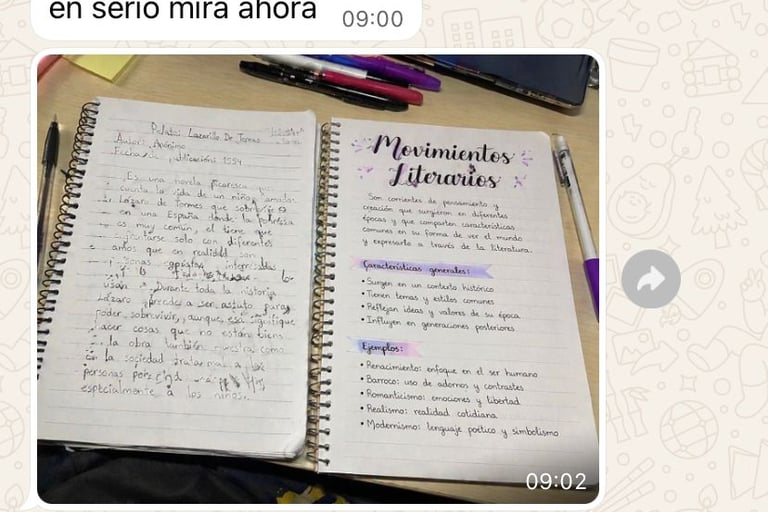 en serio mira ahora 09:00
Lazarillo De Tormes
Autor: Anónimo
1554
Es una novela picaresca que
cuenta la vida de un niño
Lázaro de Tormes que
en una España donde la pobreza
es muy común, el tiene que
solo con diferentes
amos que en realidad son
Durante toda la historia
Lázaro aprende a ser astuto para
poder sobrevivir, aunque eso signifique
hacer cosas que no están bien
la obra también muestra como
la sociedad
personas
especialmente a los niños.
Movimientos
Literarios
Son corrientes de pensamiento y
creación que surgieron en diferentes
épocas y que comparten características
comunes en su forma de ver el mundo
y expresarlo a través de la literatura.
Características generales:
• Surgen en un contexto histórico
• Tienen temas y estilos comunes
• Reflejan ideas y valores de su época
• Influyen en generaciones posteriores
Ejemplos:
• Renacimiento: enfoque en el ser humano
• Barroco: uso de adornos y contrastes
• Romanticismo: emociones y libertad
• Realismo: realidad cotidiana
• Modernismo: lenguaje poético y simbolismo
09:02